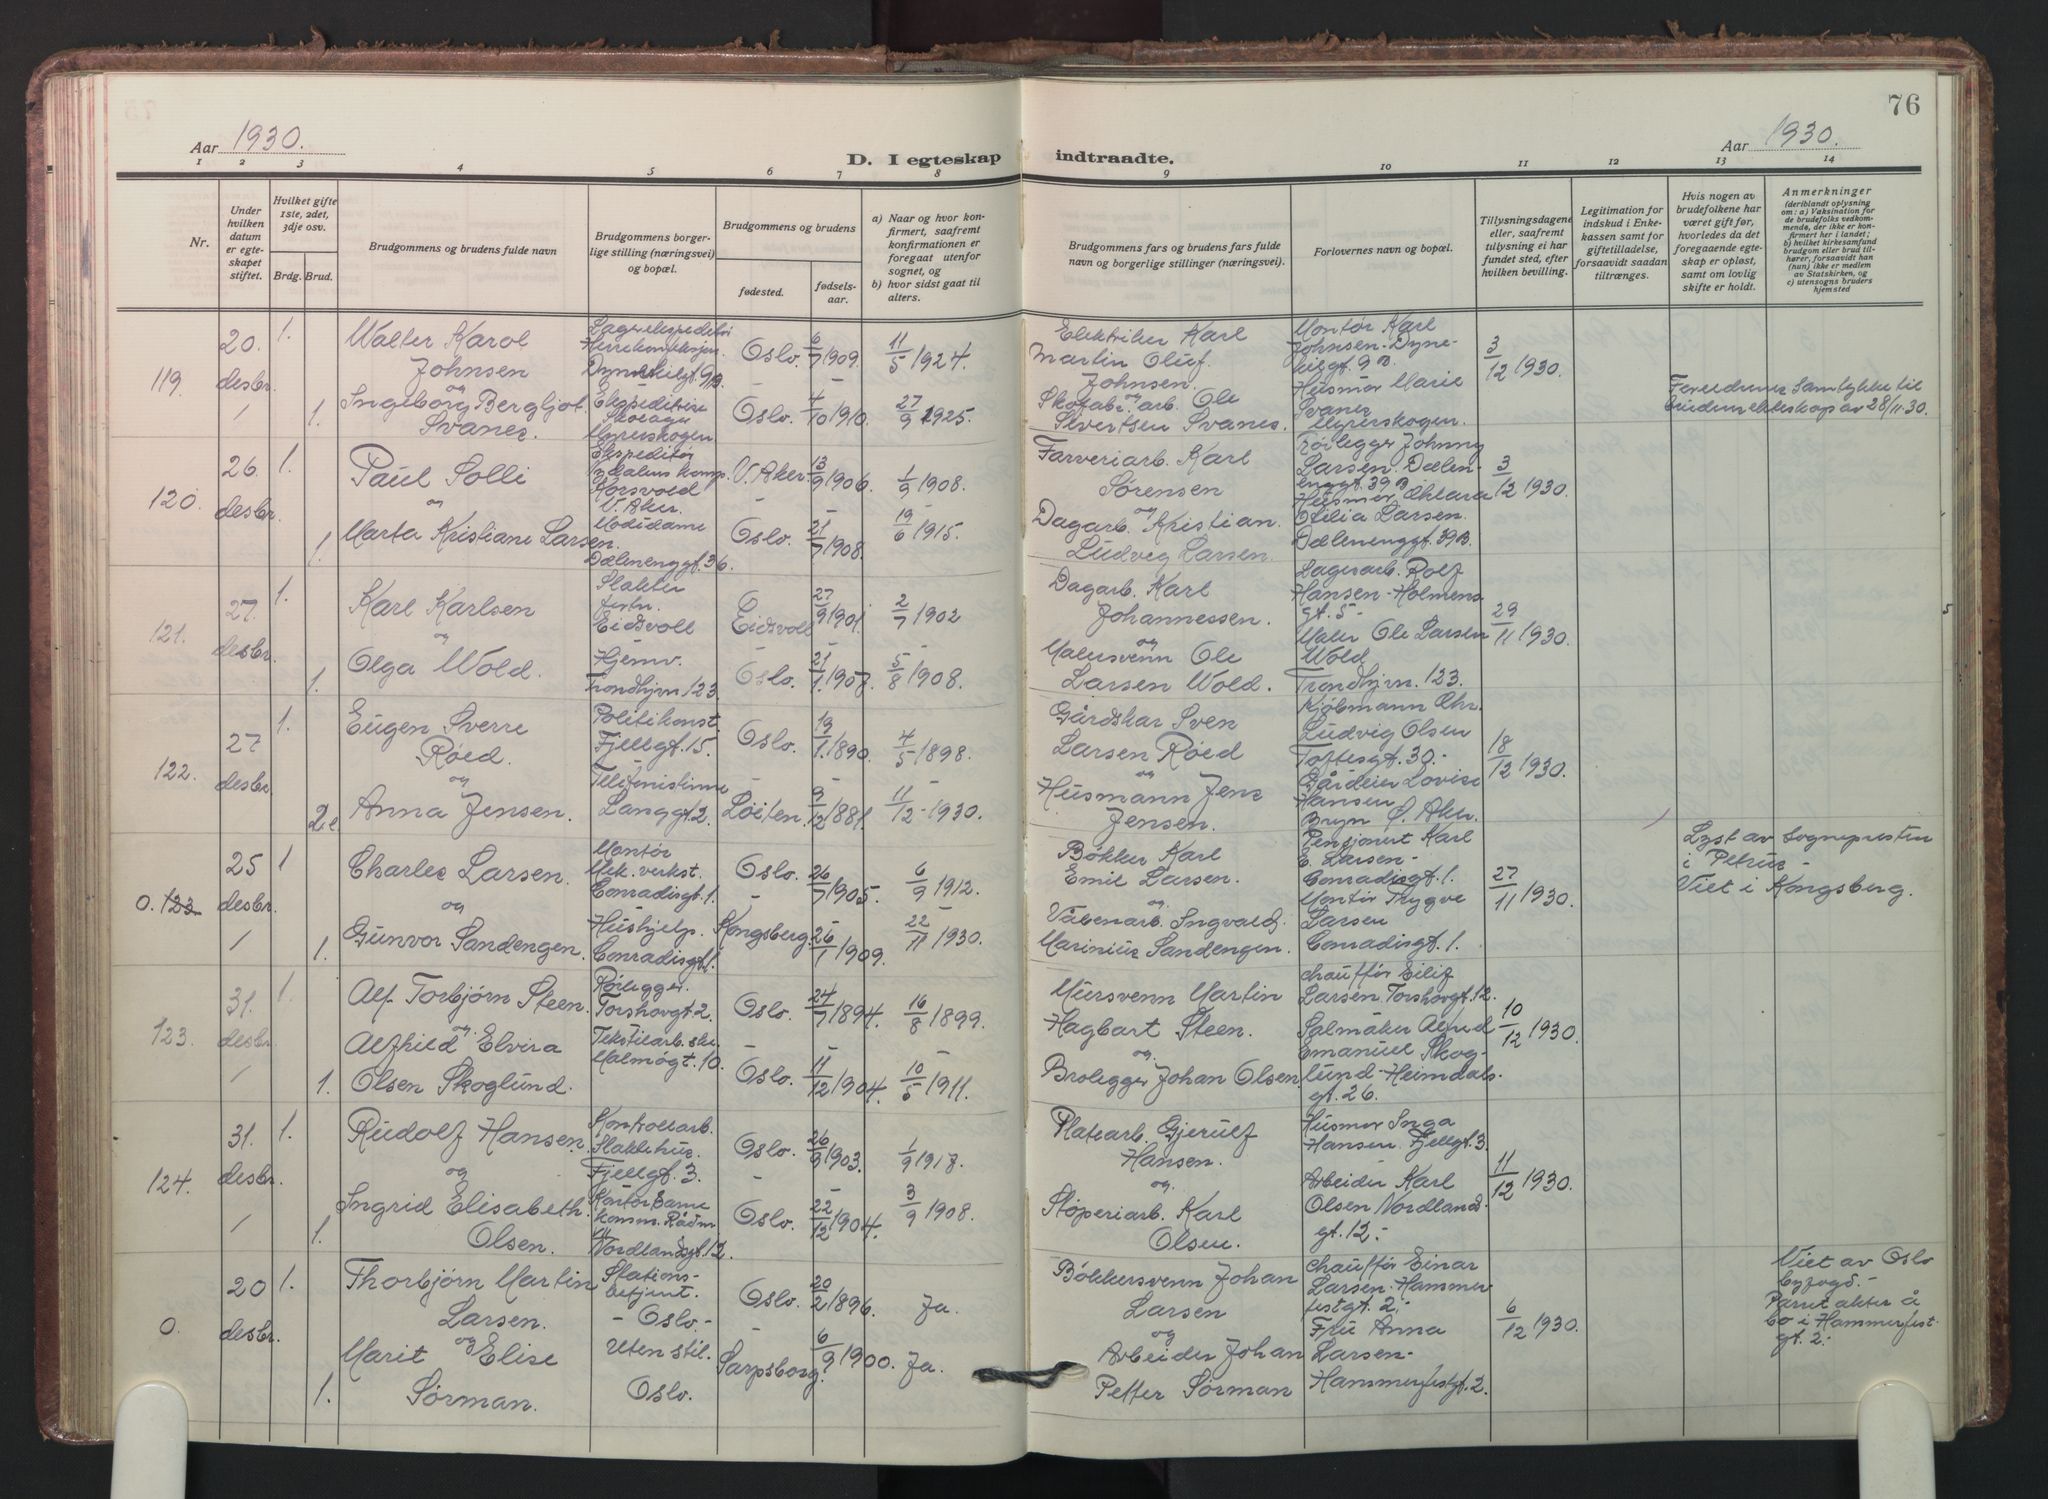 76
Aar 1930.
D. I egteskap indtraadte.
Aar 1930.
1 2 3 4 5 6 7 8 9 10 11 12 13 14
Nr.
Under hvilken datum er egteskapet stiftet.
Hvilket gifte 1ste, 2det, 3dje osv.
Brdg. Brud.
Brudgommens og brudens fulde navn
Brudgommens borgerlige stilling (næringsvei) og bopæl.
Brudgommens og brudens
fødested. fødselsaar.
a) Naar og hvor konfirmert, saafremt konfirmationen er foregaat utenfor sognet, og
b) hvor sidst gaat til alters.
Brudgommens fars og brudens fars fulde navn og borgerlige stillinger (næringsvei).
Forlovernes navn og bopæl.
Tillysningsdagene eller, saafremt tillysning ei har fundet sted, efter hvilken bevilling.
Legitimation for indskud i Enkekassen samt for giftetilladelse, forsaavidt saadan tiltrænges.
Hvis nogen av brudefolkene har været gift før, hvorledes da det foregaaende egteskap er opløst, samt om lovlig skifte er holdt.
Anmerkninger
(deriblandt oplysning om: a) Vaksination for de brudefolks vedkommende, der ikke er konfirmert her i landet; b) hvilket kirkesamfund brudgom eller brud tilhører, forsaavidt han (hun) ikke er medlem av Statskirken, og c) utensogns bruders hjemsted
119.
20. desbr.
1. 1.
Walter Karol
Johnsen
og
Ingeborg Bergljot
Svanes.
Lagerekspeditør
Dynekilgt. 9B
Ekspeditrise
Myrerskogen.
Oslo. 6/7 1909. 11/5 1924.
Oslo. 4/10 1910. 27/9 1925.
Elektriker Karl
Martin Oluf
Johnsen.
og
Skofabr. arb. Ole
Sivertsen Svanes.
Montør Karl
Johnsen - Dyne-
kilgt. 9B.
Husmor Marie
Svanes
Myrerskogen.
3/12 1930.
Foreldrenes samtykke til
av 28/11-30.
120.
26. desbr.
1. 1.
Paul Solli
og
Marta Kristiane Larsen.
Ekspeditør
Korsvold
V. Aker.
Motedame
Dælenenggt. 36.
V. Aker. 13/9 1906. 1/9 1908.
Oslo. 21/7 1908. 19/6 1915.
Farveriarb. Karl
Sørensen
og
Dagarb. Kristian
Ludvig Larsen.
Rørlegger Johnny
Larsen. Dælen-
enggt. 39B
Husmor
Otilia Larsen.
Dælenenggt. 39B.
3/12 1930.
121.
27. desbr.
1. 1.
Karl Karlsen
og
Olga Wold.
Slakter
Eidsvoll
Hjemv.
Trondhjm. 123.
Eidsvoll 27/9 1901. 2/7 1902
Oslo. 21/1 1907. 5/8 1908.
Dagarb. Karl
Johannessen.
og
Malersvenn Ole
Larsen Wold.
Lagerarb. Rolf
Hansen - Holmens
gt. 5-
Maler Ole Larsen
Wold
Trondhjm. 123.
29/11 1930.
122.
27 desbr.
1. 2.
Eugen Sverre
Røed.
og
Anna Jensen.
Politikonst.
Fjellgt. 15.
Telefonistinne
Langgt. 2.
Oslo. 19/1 1890. 4/5 1898.
Løiten. 9/12 1881. 11/12-1930.
Gårdskar Sven
Larsen Røed
og
Husmann Jens
Jensen.
Kjøbmann Chr.
Ludvig Olsen
Toftesgt. 30.-
Gårdeier Lovise
Hansen
Bryn Ø. Aker.
18/12 1930.
0. 123
25 desbr.
1 1.
Charles Larsen.
og
Gunvor Sandengen.
Montør
Mek. verkst.
Conradisgt. 1.
Hushjelp.
Conradisgt. 1.
Oslo. 26/7 1905. 6/9 1912.
Kongsberg. 26/1 1909. 22/11 1930.
Bøkker Karl
Emil Larsen.
og
Våbenarb. Ingvald
Marinius Sandengen.
Pensjonert Karl
E. Larsen-
Conradisgt. 1.
Montør Trygve
Larsen
Conradisgt. 1.
27/11 1930.
Lyst av Sognepresten
i Petrus -
Viet i Kongsberg.
123.
31. desbr.
1. 1.
Alf Torbjørn Steen
og
Alfhild Elvira
Olsen Skoglund.
Rørlegger.
Torshovgt. 2.
Tekstilarb. ske.
Malmøgt. 10.
Oslo. 24/7 1894. 16/8 1899.
Oslo. 11/12 1904. 10/5 1911.
Mursvenn Martin
Hagbart Steen.
og
Brolegger Johan Olsen
Chauffør Eilif
Larsen. Torshovgt. 12.
Salmaker Alfred
Emanuel Skog-
lund - Heimdals-
gt. 26.
10/12 1930.
124.
31. desbr.
1. 1.
Rudolf Hansen.
og
Ingrid Elisabeth
Olsen.
Kontrollarb.
Slaktehus.
Fjellgt. 3.
Kontordame
Nordlandsgt. 12.
Oslo. 26/9 1903. 1/9 1917.
Oslo. 22/12 1904. 3/9 1908.
Platearb. Gjerulf
Hansen.
og.
Støperiarb. Karl
Olsen.
Husmor Inga
Hansen. Fjellgt. 3.
Arbeider Karl
Olsen Nordlands-
gt. 12.-
11/12 1930.
0.
20 desbr.
1. 1.
Thorbjørn Martin
Larsen.
og
Marit Elise
Sørman.
Stations-
betjent.
- Oslo. -
Uten stil.
Oslo.
Oslo. 20/2 1896. Ja.
Sarpsborg. 6/9 1900. Ja.
Bøkkersvenn Johan
Larsen
og
Arbeider Johan
Petter Sørman
Chauffør Einar
Larsen. Hammer
festgt. 2.-
Fru Anna
Larsen-
Hammerfestgt. 2.
6/12 1930.
Viet av Oslo
byfogd.-
Parret akter å
bo i Hammerfest
gt. 2.-